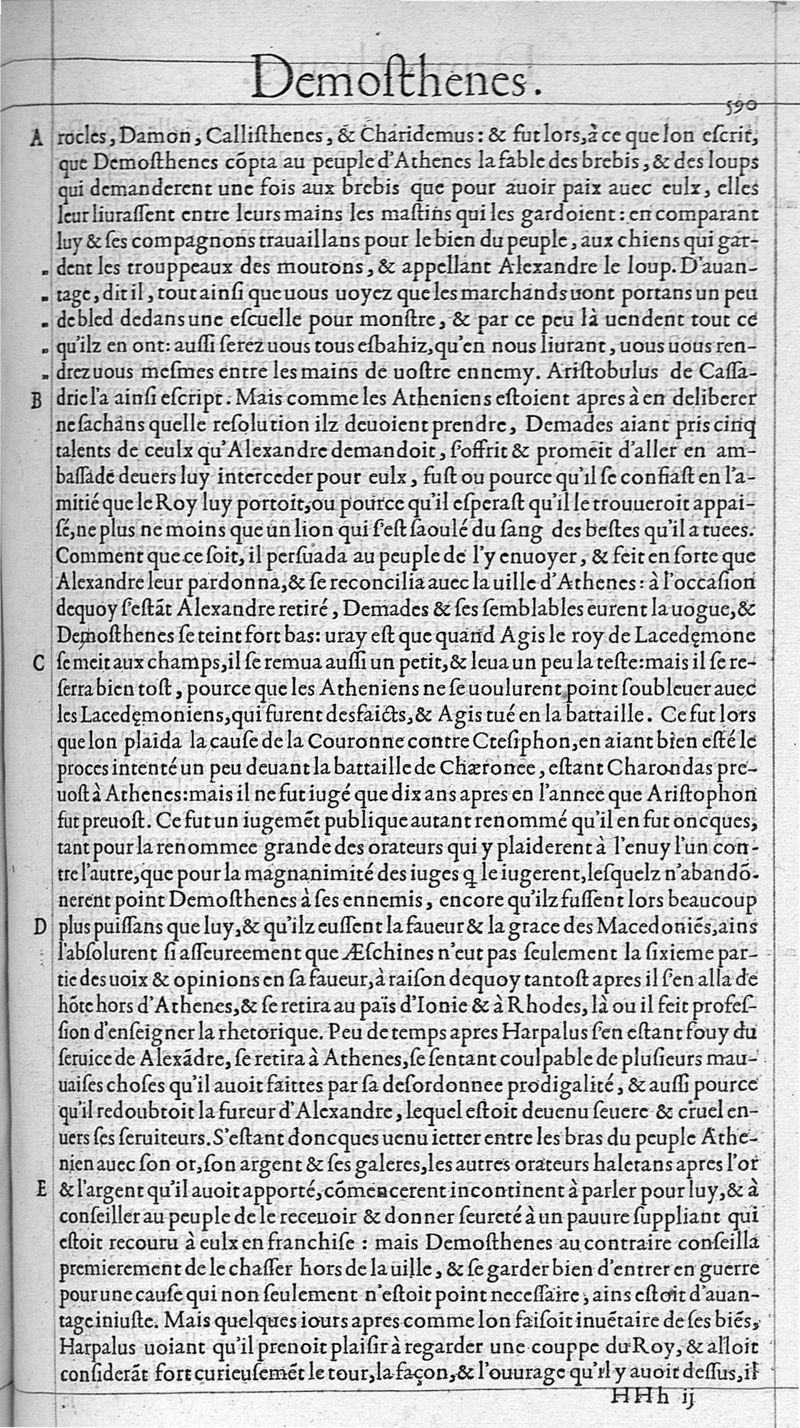 Demoſthenes.
590
A rocles, Damon, Calliſthenes, & Charidemus: & fut lors, à ce que lon eſcrit,
que Demoſthenes cõpta au peuple d'Athenes la fable des brebis, & des loups
qui demanderent une fois aux brebis que pour auoir paix auec eulx, elles
leur liuraſſent entre leurs mains les maſtins qui les gardoient: en comparant
luy & ſes compagnons trauaillans pour le bien du peuple, aux chiens qui gar-
„ dent les trouppeaux des moutons, & appellant Alexandre le loup. D'auan-
„ tage, dit il, tout ainſi que uous uoyez que les marchands uont portans un peu
„ de bled dedans une eſcuelle pour monſtre, & par ce peu là uendent tout ce
„ qu'ilz en ont: auſſi ſerez uous tous eſbahiz, qu'en nous liurant, uous uous ren-
„ drez uous meſmes entre les mains de uoſtre ennemy. Ariſtobulus de Caſſa-
B drie l'a ainſi eſcript. Mais comme les Atheniens eſtoient apres à en deliberer
ne ſachans quelle reſolution ilz deuoient prendre, Demades aiant pris cinq
talents de ceulx qu'Alexandre demandoit, ſ'offrit & promeit d'aller en am-
baſſade deuers luy interceder pour eulx, fuſt ou pource qu'il ſe confiaſt en l'a-
mitié que le Roy luy portoit, ou pource qu'il eſperaſt qu'il le trouueroit appai-
ſé, ne plus ne moins que un lion qui ſ'eſt ſaoulé du ſang des beſtes qu'il a tuees.
Comment que ce ſoit, il perſuada au peuple de l'y enuoyer, & feit en ſorte que
Alexandre leur pardonna, & ſe reconcilia auec la uille d'Athenes: à l'occaſion
dequoy ſ'eſtãt Alexandre retiré, Demades & ſes ſemblables eurent la uogue, &
Demoſthenes ſe teint fort bas: uray eſt que quand Agis le roy de Lacedęmone
C ſe meit aux champs, il ſe remua auſſi un petit, & leua un peu la teſte: mais il ſe re-
ſerra bien toſt, pource que les Atheniens ne ſe uoulurent point ſoubleuer auec
les Lacedęmoniens, qui furent desfaicts, & Agis tué en la battaille. Ce fut lors
que lon plaida la cauſe de la Couronne contre Cteſiphon, en aiant bien eſté le
proces intenté un peu deuant la battaille de Chæronee, eſtant Charondas pre-
uoſt à Athenes: mais il ne fut iugé que dix ans apres en l'annee que Ariſtophon
fut preuoſt. Ce fut un iugemẽt publique autant renommé qu'il en fut oncques,
tant pour la renommee grande des orateurs qui y plaiderent à l'enuy l'un con-
tre l'autre, que pour la magnanimité des iuges q̃ le iugerent, leſquelz n'abandõ-
nerent point Demoſthenes à ſes ennemis, encore qu'ilz fuſſent lors beaucoup
D plus puiſſans que luy, & qu'ilz euſſent la faueur & la grace des Macedoniẽs, ains
l'abſolurent ſi aſſeureement que Æſchines n'eut pas ſeulement la ſixieme par-
tie des uoix & opinions en ſa faueur, à raiſon dequoy tantoſt apres il ſ'en alla de
hõte hors d'Athenes, & ſe retira au païs d'Ionie & à Rhodes, là ou il feit profeſ-
ſion d'enſeigner la rhetorique. Peu de temps apres Harpalus ſ'en eſtant fouy du
ſeruice de Alexãdre, ſe retira à Athenes, ſe ſentant coulpable de pluſieurs mau-
uaiſes choſes qu'il auoit faittes par ſa deſordonnee prodigalité, & auſſi pource
qu'il redoubtoit la fureur d'Alexandre, lequel eſtoit deuenu ſeuere & cruel en-
uers ſes ſeruiteurs. S'eſtant doncques uenu ietter entre les bras du peuple Athe-
nien auec ſon or, ſon argent & ſes galeres, les autres orateurs haletans apres l'or
E & l'argent qu'il auoit apporté, cõmencerent incontinent à parler pour luy, & à
conſeiller au peuple de le receuoir & donner ſeureté à un pauure ſuppliant qui
eſtoit recouru à eulx en franchiſe: mais Demoſthenes au contraire conſeilla
premierement de le chaſſer hors de la uille, & ſe garder bien d'entrer en guerre
pour une cauſe qui non ſeulement n'eſtoit point neceſſaire, ains eſtoit d'auan-
tage iniuſte. Mais quelques iours apres comme lon faiſoit inuẽtaire de ſes biẽs,
Harpalus uoiant qu'il prenoit plaiſir à regarder une couppe du Roy, & alloit
conſiderãt fort curieuſemẽt le tour, la façon, & l'ouurage qu'il y auoit deſſus, il
HHh ij